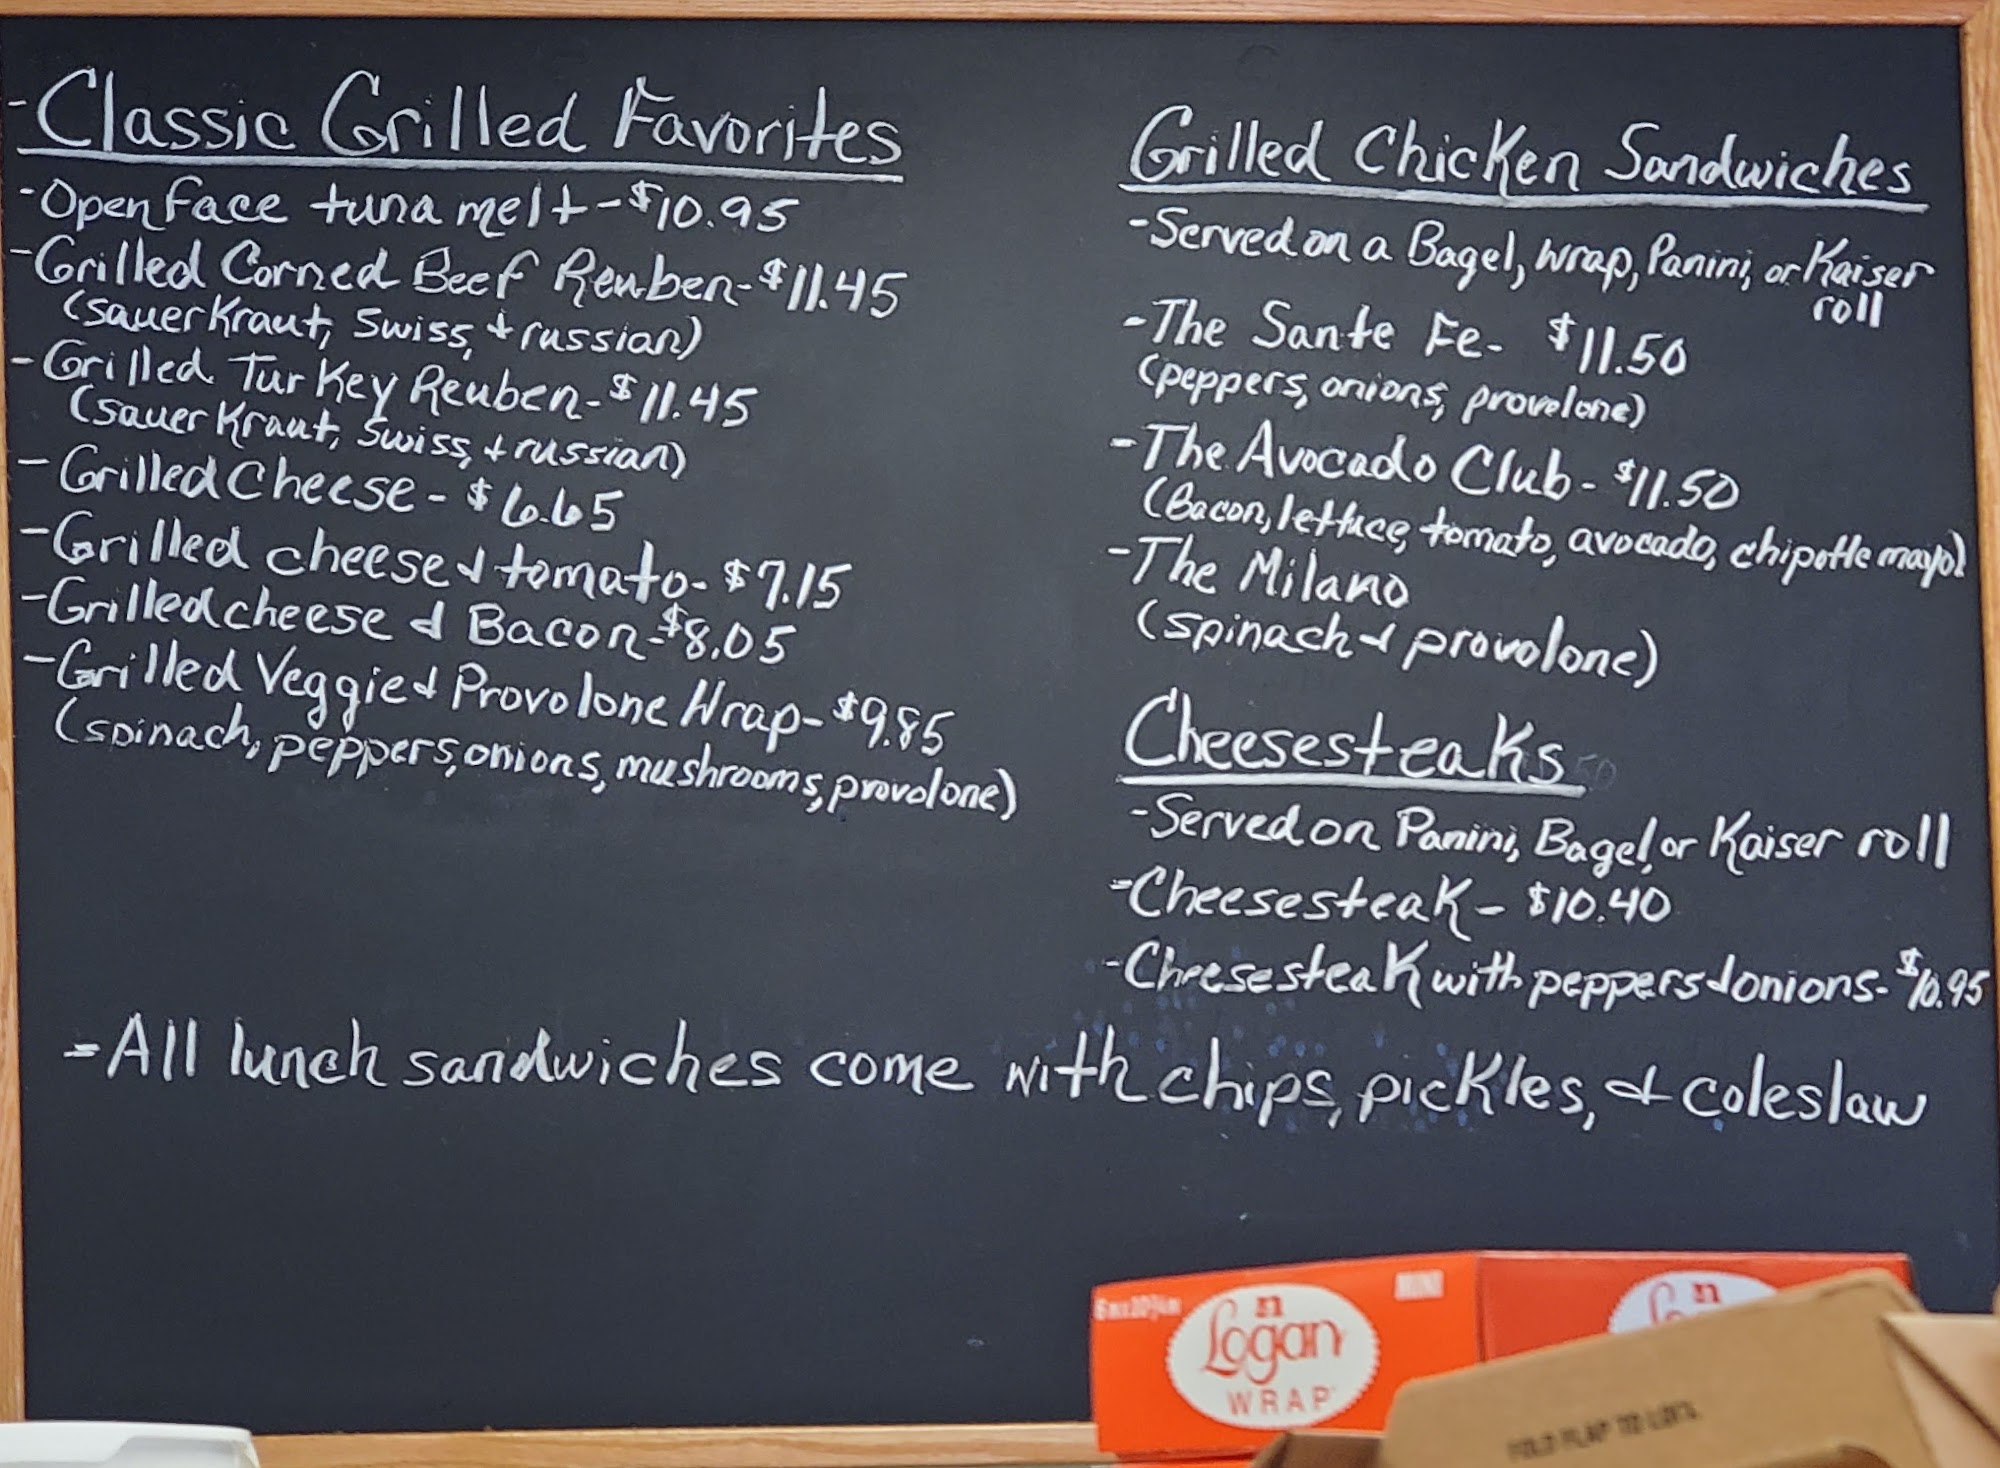 -Classic Grilled Favorites
-Open face tuna melt-$10.95
-Grilled Corned Beef Reuben-$11.45
(sauerKraut, Swiss, + russian)
-Grilled Turkey Reuben-$11.45
(sauerKraut, Swiss, + russian)
-Grilled Cheese-$6.65
-Grilled cheese & tomato-$7.15
-Grilled cheese & Bacon-$8.05
-Grilled Veggie & Provolone Wrap-$9.85
(spinach, peppers, onions, mushrooms, provolone)
Grilled Chicken Sandwiches
-Served on a Bagel, wrap, Panini, or Kaiser
roll
-The Sante Fe- $11.50
(peppers, onions, provolone)
-The Avocado Club-$11.50
(Bacon, lettuce, tomato, avocado, chipotle mayo)
-The Milano
(spinach & provolone)
Cheesesteaks
-Served on Panini, Bagel, or Kaiser roll
-Cheesesteak-$10.40
-Cheesesteak with peppers & onions-$10.95
-All lunch sandwiches come with chips, pickles, & coleslaw
MINI
Logan
WRAP
FOLD FLAP TO LOCK